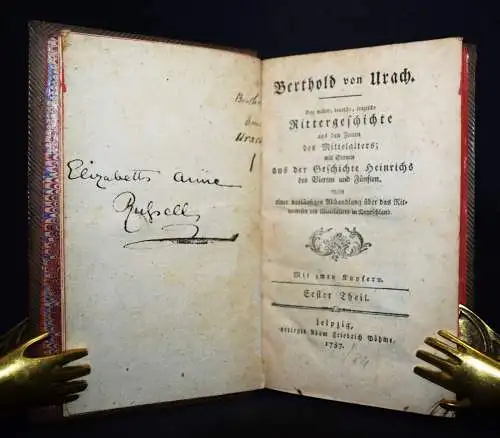 Berth
von
Urach
1
Elizabeth Anne
Russell
Berthold von Urach.
Eine wahre, deutsche, tragische
Rittergeschichte
aus den Zeiten
des Mittelalters;
mit Scenen
aus der Geschichte Heinrichs
des Vierten und Fünften.
nebst
einer vorläufigen Abhandlung über das Rit-
und in Deutschland.
Mit zwey Kupfern.
Erster Theil.
Leipzig,
verlegts Adam Friedrich Böhme,
1787.